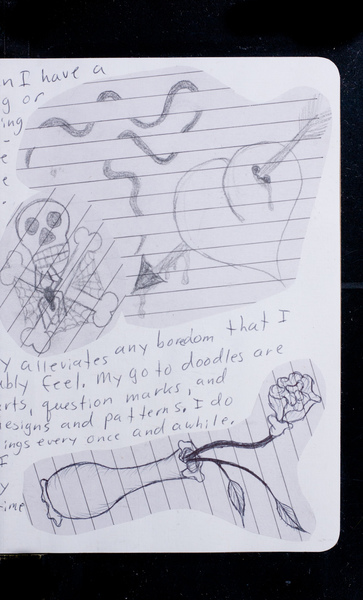 n I have a
g or
ing
e
e
y alleviates any boredom that I
ably feel. My go to doodles are
arts, question marks, and
designs and patterns. I do
ings every once and awhile.
I
y
time